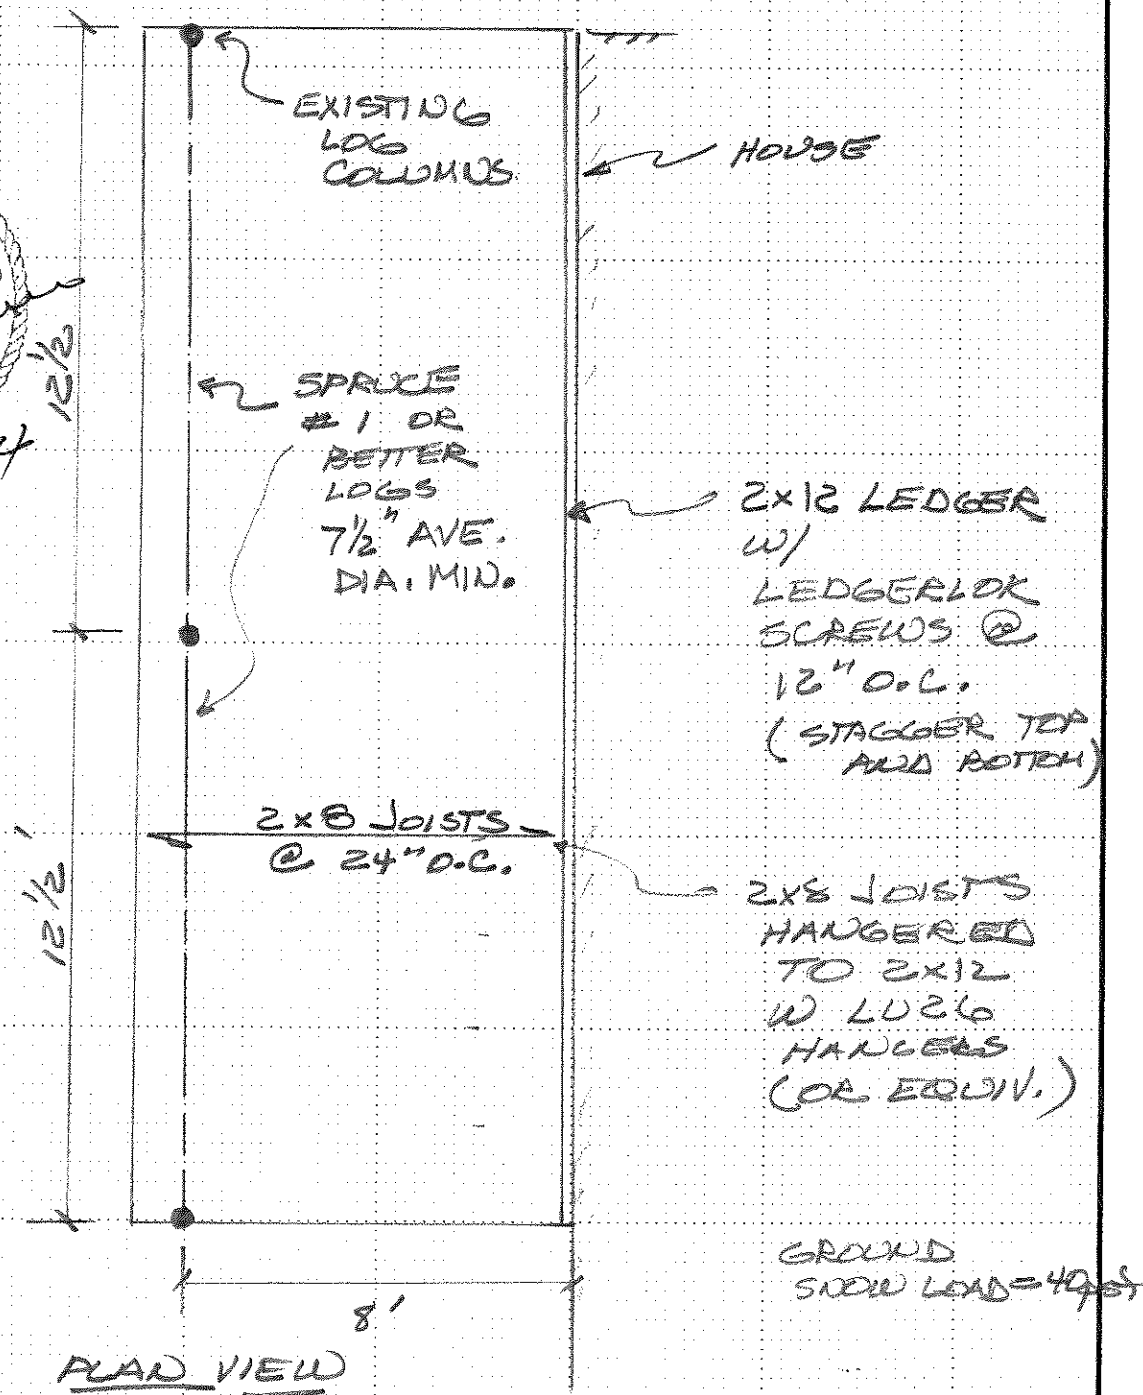 EXISTING
LOG
COLUMNS
HOUSE
12 1/2
SPRUCE
# 1 OR
BETTER
LOGS
7 1/2" AVE.
DIA. MIN.
2x12 LEDGER
W/
LEDGERLOK
SCREWS @
12" O.C.
(STAGGER TOP
AND BOTTOM)
2x8 JOISTS
@ 24" O.C.
12 1/2'
2x8 JOISTS
HANGERED
TO 2x12
W LU26
HANGERS
(OR EQUIV.)
GROUND
SNOW LOAD=40psf
8'
PLAN VIEW